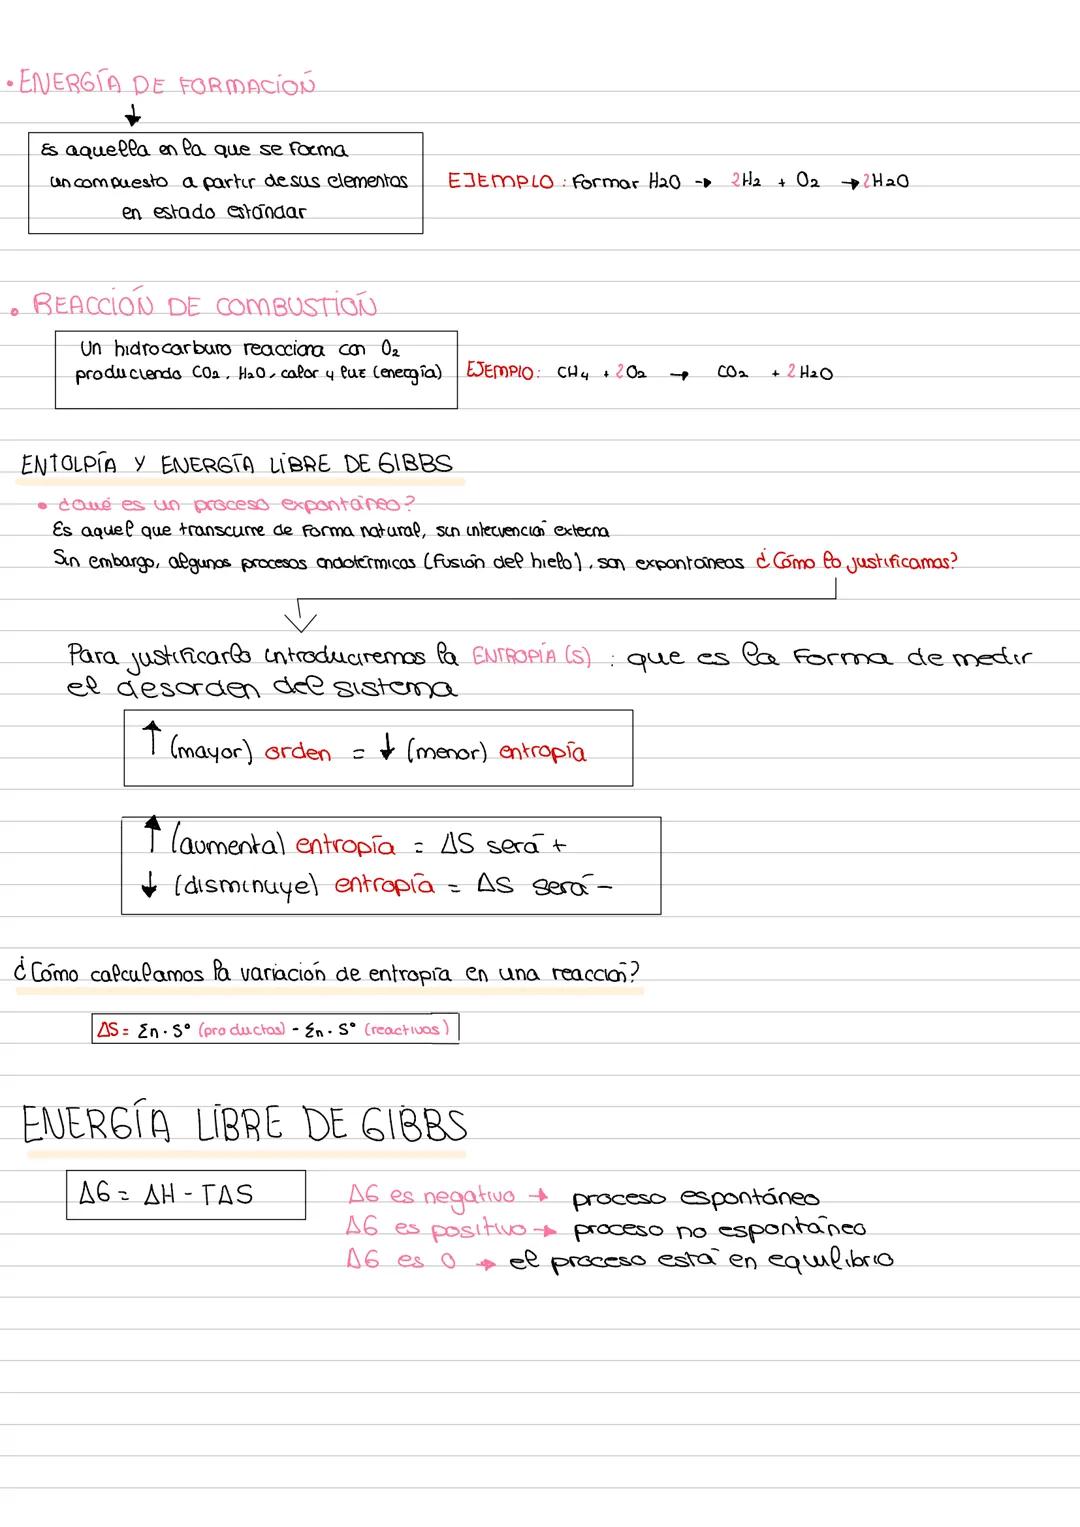 • ENERGÍA DE FORMACIÓN
Es aquella en la que se forma
un compuesto a partir de sus elementos
en estado estándar
EJEMPLO: Formar H2O → 2H2 + O2 → 2H2O
• REACCIÓN DE COMBUSTIÓN
Un hidrocarburo reacciona con O2
produciendo CO2, H2O, calor y luz (energía)
EJEMPLO: CH4 + 2O2 → CO2 + 2H2O
ENTOLPÍA Y ENERGÍA LIBRE DE GIBBS
• ¿Qué es un proceso expontáneo?
Es aquel que transcurre de forma natural, sin intervención externa
Sin embargo, algunos procesos endotérmicos (fusión del hielo), son expontáneos ¿Cómo lo justificamos?
Para justificarlo introduciremos la ENTROPÍA (S) : que es la forma de medir
el desorden del sistema
↑ (mayor) orden = ↓ (menor) entropía
↑ (aumenta) entropía = ΔS será +
↓ (disminuye) entropía = ΔS será -
¿Cómo calculamos la variación de entropía en una reacción?
ΔS = Σn · S° (productos) - Σn · S° (reactivos)
ENERGÍA LIBRE DE GIBBS
ΔG = ΔH - TΔS
ΔG es negativo → proceso espontáneo
ΔG es positivo → proceso no espontáneo
ΔG es 0 → el proceso está en equilibrio